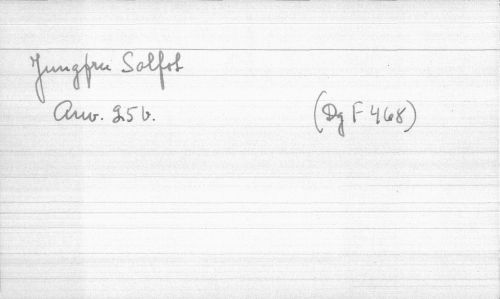 Jungfru Solfot
Arw. 25 b.
(Dg F 468)